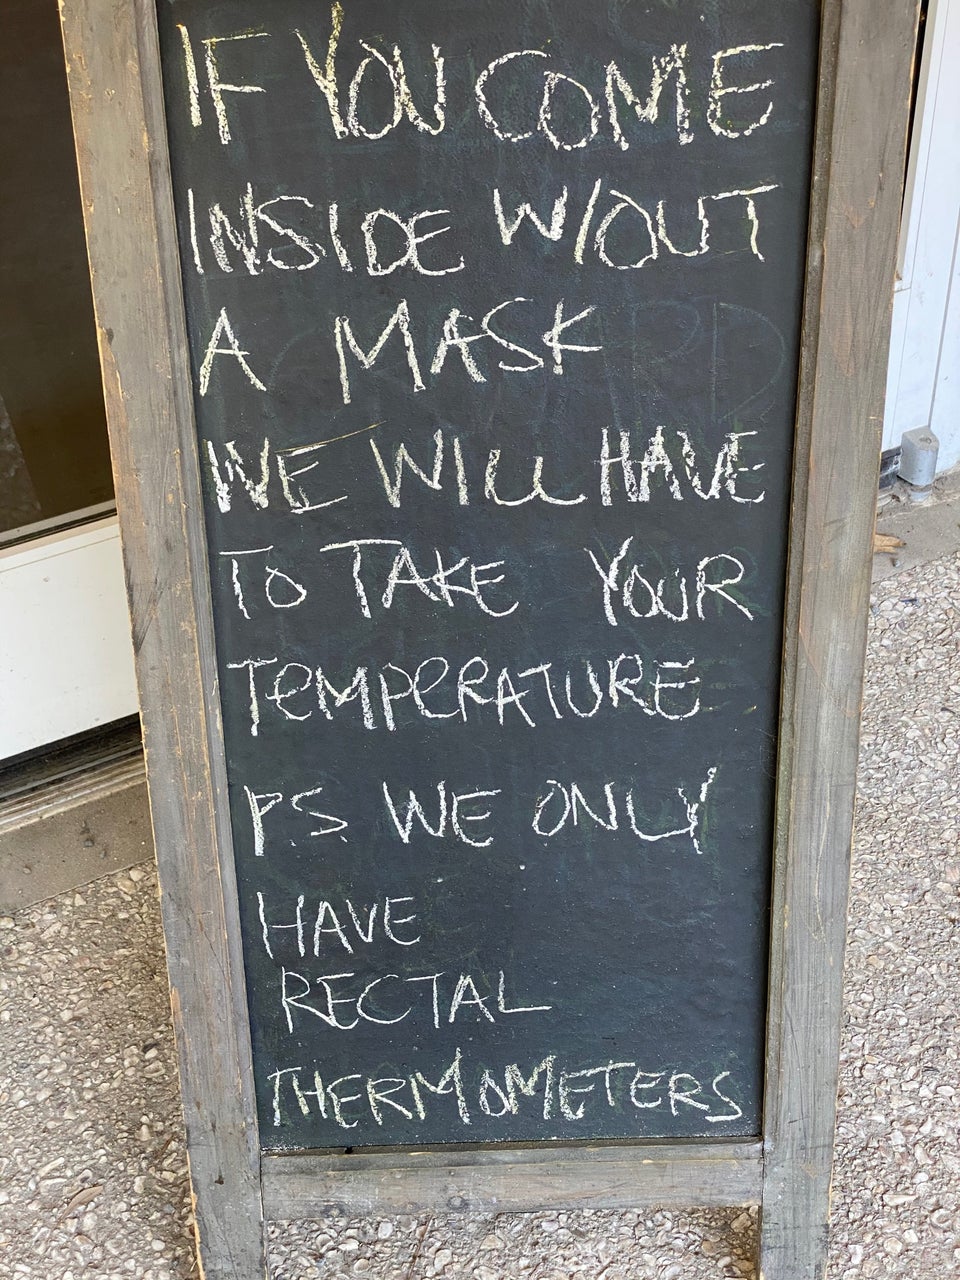 IF YOU COME
INSIDE W/OUT
A MASK
WE WILL HAVE
TO TAKE YOUR
TEMPERATURE
P.S. WE ONLY
HAVE
RECTAL
THERMOMETERS